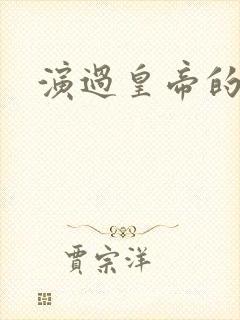 演過皇帝的
賈宗洋